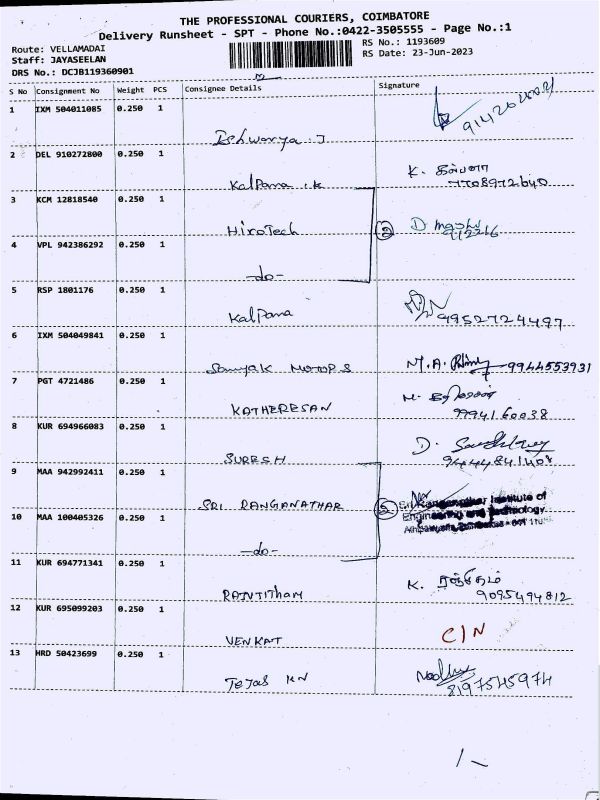 THE PROFESSIONAL COURIERS, COIMBATORE
Delivery Runsheet - SPT - Phone No.:0422-3505555 - Page No.:1
Route: VELLAMADAI
RS No.: 1193609
Staff: JAYASEELAN
RS Date: 23-Jun-2023
DRS No.: DCJB119360901
S No Consignment No Weight PCS Consignee Details Signature
1 IXM 504011085 0.250 1
Ishwarya . J
2 DEL 910272800 0.250 1
Kalpana .K K. கல்பனா
7708972640
3 KCM 12818540 0.250 1
HiroTech ② D
4 VPL 942386292 0.250 1
-do-
5 RSP 1801176 0.250 1
Kalpana 9952724497
6 IXM 504049841 0.250 1
MOTORS M.A. 9944553931
7 PGT 4721486 0.250 1
KATHERESAN 9994160038
8 KUR 694966083 0.250 1
SURESH D.
9444841408
9 MAA 942992411 0.250 1
SRI RANGANATHAR ② Sri Ranganathar Institute of
Engineering and Technology
10 MAA 100405326 0.250 1
-do-
11 KUR 694771341 0.250 1
RANJITHAM K. ரஞ்சிதம்
9095494812
12 KUR 695099203 0.250 1
VENKAT C/N
13 HRD 50423699 0.250 1
Tejas KN
8197545974
1/-